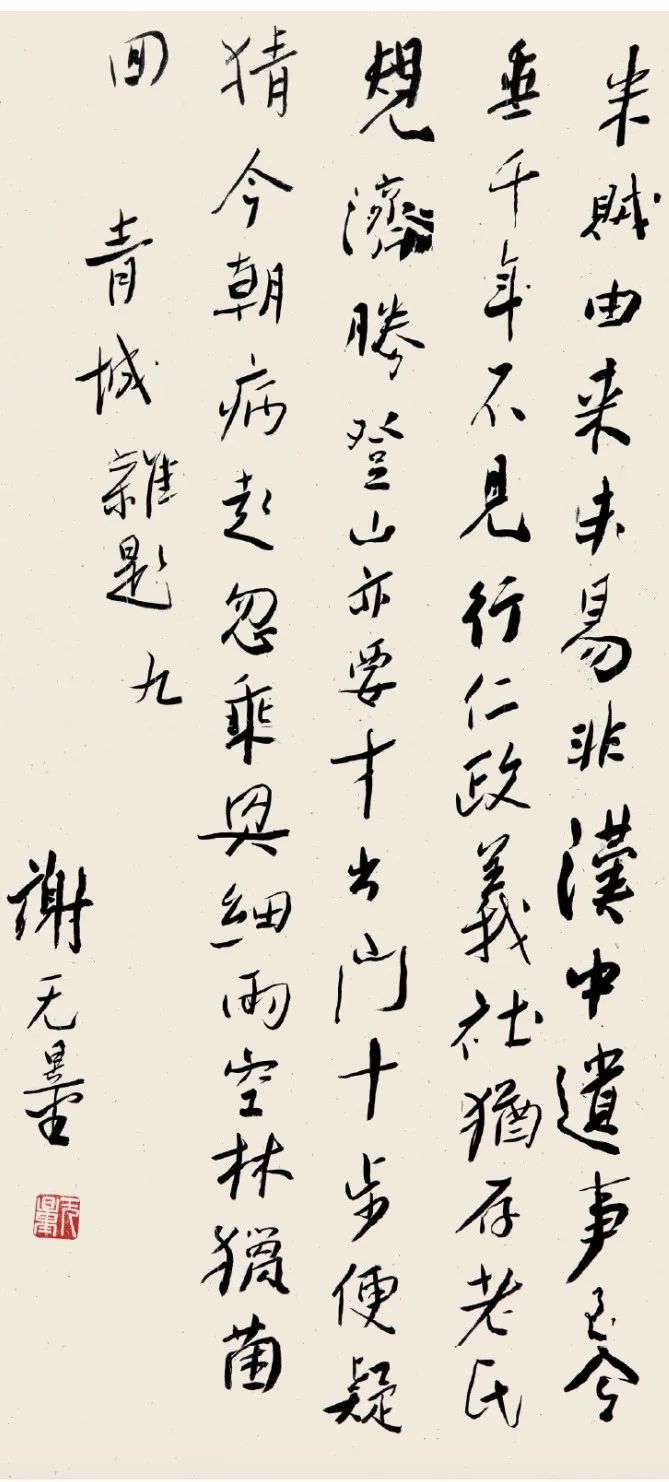 米賊由来未易非漢中遺事至今
垂千年不見行仁政義社猶存老氏
規濟勝登山亦要才出門十步便疑
猜今朝病起忽乘興細雨空林獵菌
回 青城雜題九
謝无量
无量